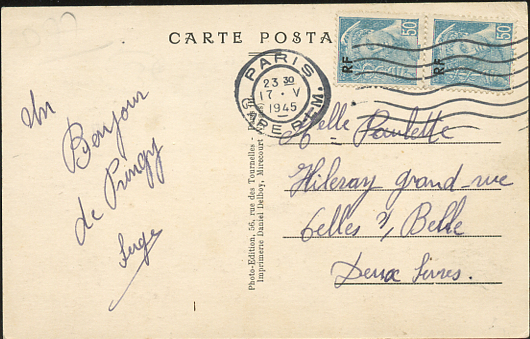 CARTE POSTA
PARIS
23 30
17 · V
1945
GARE P.L.M.
50
RF
50
RF
Un
Bonjour
de Pringy
Serge
Photo-Edition, 56, rue des Tournelles -
Imprimerie Daniel Delboy, Mirecourt
Melle Paulette
Hileray grand-rue
Celles s/ Belle
Deux Sèvres.
1